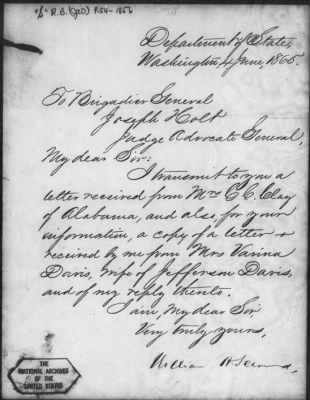 "L" R.B. (JAO) P.54-1865
Department of State,
Washington 4 June, 1865.
To Brigadier General
Joseph Holt
Judge Advocate General,
My dear Sir:
I transmit to you a
letter received from Mrs C. C. Clay
of Alabama, and also, for your
information, a copy of a letter
received by me from Mrs Varina
Davis, wife of Jefferson Davis,
and of my reply thereto.
I am, My dear Sir
Very truly yours,
William H. Seward.
THE
NATIONAL ARCHIVES
OF THE
UNITED STATES